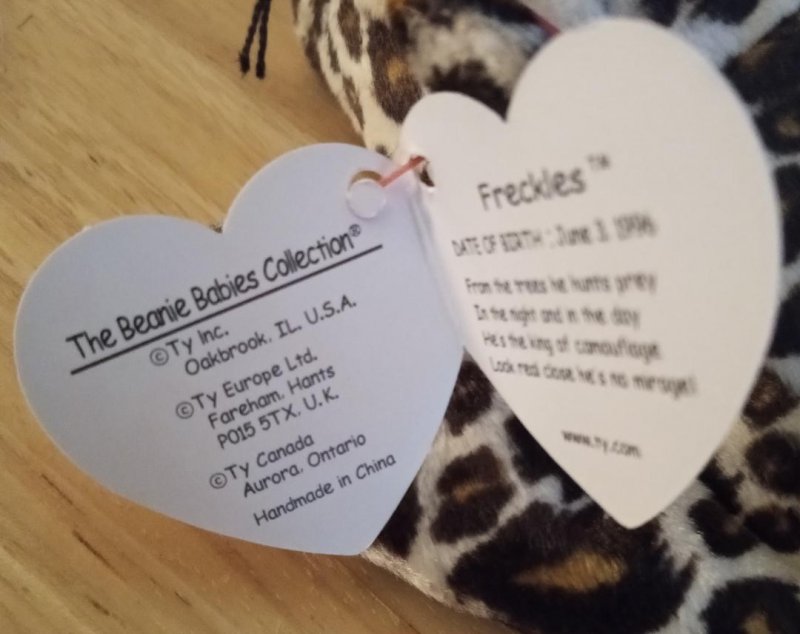 The Beanie Babies Collection®
©Ty Inc.
Oakbrook, IL. U.S.A.
©Ty Europe Ltd.
Fareham, Hants
P015 5TX, U.K.
©Ty Canada
Aurora, Ontario
Handmade in China
Freckles™
DATE OF BIRTH : June 3, 1996
From the trees he hunts prey
In the night and in the day
He's the king of camouflage
Look real close, he's no mirage!
www.ty.com